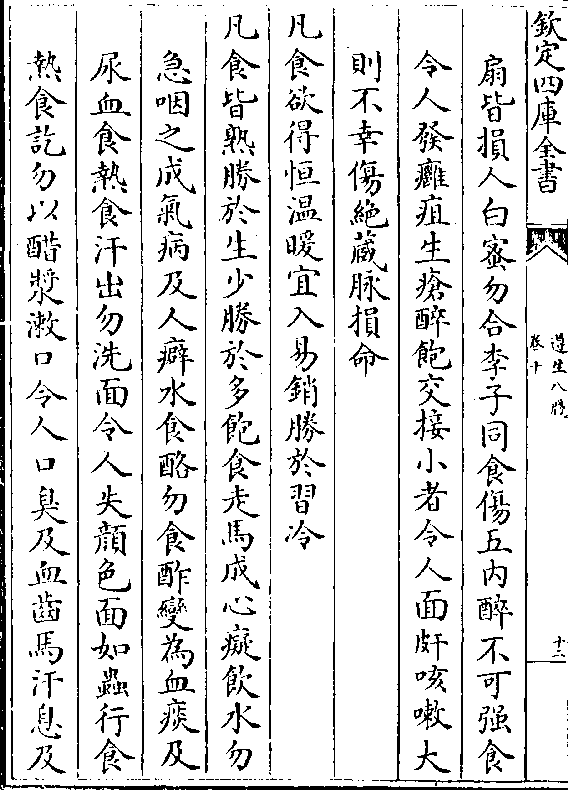 欽定四庫全書
遵生八牋
卷十
十二
扇皆損人白蜜勿合李子同食傷五内醉不可强食
令人發癰疽生瘡醉飽交接小者令人面皯咳嗽大
則不幸傷絶藏脉損命
凡食欲得恒温暖宜入易銷勝於習冷
凡食皆熟勝於生少勝於多飽食走馬成心癡飲水勿
急咽之成氣病及人癖水食酪勿食酢變為血痰及
尿血食熱食汗出勿洗面令人失顔色面如蟲行食
熱食訖勿以醋漿漱口令人口臭及血齒馬汗息及